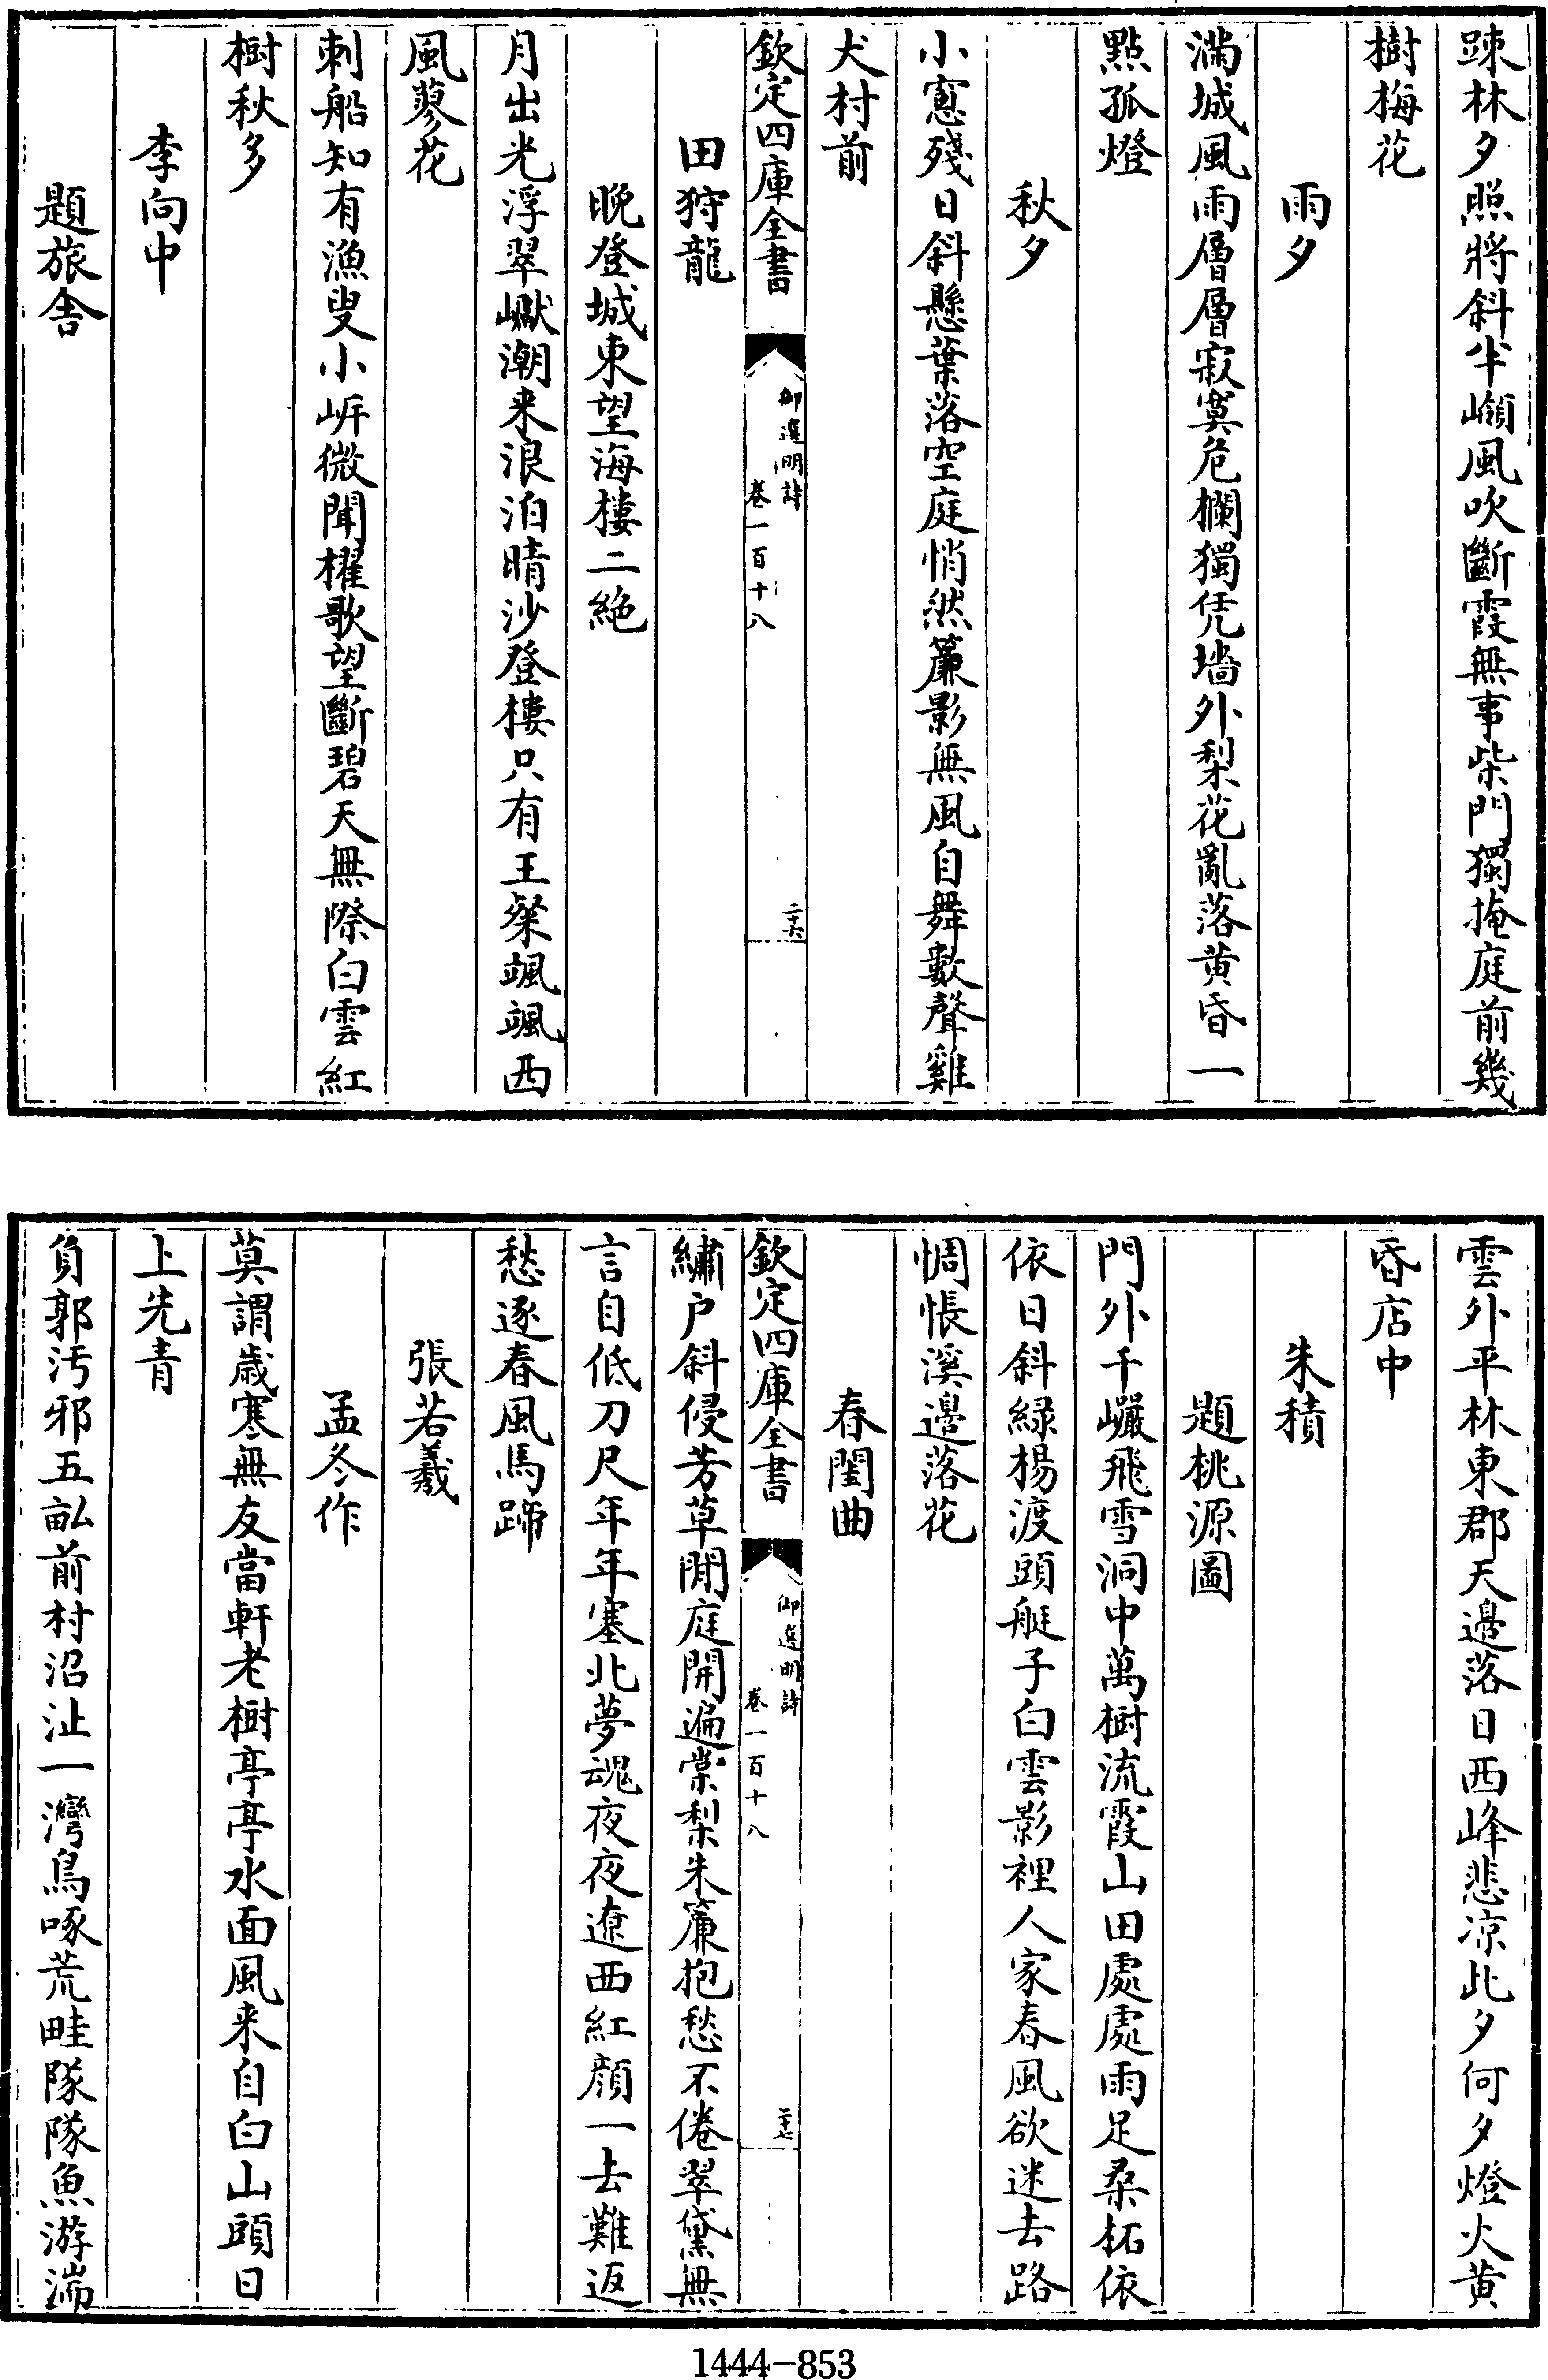 踈林夕照將斜半嶺風吹斷霞無事柴門獨掩庭前幾
樹梅花
雨夕
滿城風雨層層寂寞危欄獨凭墻外梨花亂落黄昏一
點孤燈
秋夕
小窻殘日斜懸葉落空庭悄然簾影無風自舞數聲雞
犬村前
欽定四庫全書
御選明詩
卷一百十八
二十六
田狩龍
晚登城東望海樓二絶
月出光浮翠巘潮来浪泊晴沙登樓只有王粲颯颯西
風蓼花
刺船知有漁叟小㟁微聞櫂歌望斷碧天無際白雲紅
樹秋多
李向中
題旅舎
雲外平林東郡天邊落日西峰悲凉此夕何夕燈火黄
昏店中
朱積
題桃源圖
門外千巖飛雪洞中萬樹流霞山田處處雨足桑柘依
依日斜緑楊渡頭艇子白雲影裡人家春風欲迷去路
惆悵溪邊落花
春閨曲
欽定四庫全書
御選明詩
卷一百十八
二十七
繡户斜侵芳草閒庭開遍棠梨朱簾抱愁不倦翠黛無
言自低刀尺年年塞北夢魂夜夜遼西紅顔一去難返
愁逐春風馬蹄
張若羲
孟冬作
莫謂歳寒無友當軒老樹亭亭水面風来自白山頭日
上先青
負郭汚邪五畝前村沼沚一灣鳥啄荒畦隊隊魚游湍
1444-853